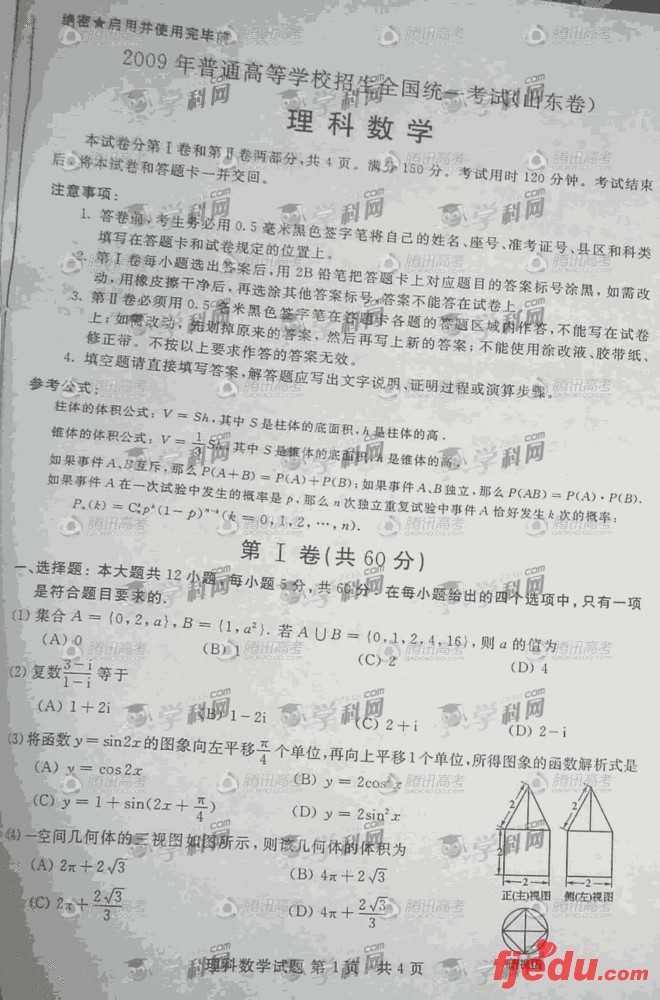 绝密★启用并使用完毕前
2009 年普通高等学校招生全国统一考试(山东卷)
理 科 数 学
本试卷分第 Ⅰ 卷和第 Ⅱ 卷两部分,共 4 页。满分 150 分。考试用时 120 分钟。考试结束
后,将本试卷和答题卡一并交回。
注意事项:
1. 答卷前,考生务必用 0.5 毫米黑色签字笔将自己的姓名、座号、准考证号、县区和科类
填写在答题卡和试卷规定的位置上。
2. 第 Ⅰ 卷每小题选出答案后,用 2B 铅笔把答题卡上对应题目的答案标号涂黑,如需改
动,用橡皮擦干净后,再选涂其他答案标号,答案不能答在试卷上。
3. 第 Ⅱ 卷必须用 0.5 毫米黑色签字笔在答题卡各题的答题区域内作答,不能写在试卷
上;如需改动,先划掉原来的答案,然后再写上新的答案;不能使用涂改液、胶带纸、
修正带。不按以上要求作答的答案无效。
4. 填空题请直接填写答案,解答题应写出文字说明、证明过程或演算步骤。
参考公式:
柱体的体积公式: V = Sh,其中 S 是柱体的底面积,h 是柱体的高.
锥体的体积公式: V = 1/3 Sh,其中 S 是锥体的底面积,h 是锥体的高.
如果事件 A、B 互斥,那么 P(A+B) = P(A)+P(B);如果事件 A、B 独立,那么 P(AB) = P(A)·P(B).
如果事件 A 在一次试验中发生的概率是 p,那么 n 次独立重复试验中事件 A 恰好发生 k 次的概率:
Pₙ(k) = Cₙᵏpᵏ(1-p)ⁿ⁻ᵏ(k = 0,1,2,…,n).
第 Ⅰ 卷(共 60 分)
一、选择题: 本大题共 12 小题,每小题 5 分,共 60 分. 在每小题给出的四个选项中,只有一项
是符合题目要求的.
(1) 集合 A = {0,2,a}, B = {1,a²}. 若 A ∪ B = {0,1,2,4,16},则 a 的值为
(A) 0 (B) 1 (C) 2 (D) 4
(2) 复数 (3-i)/(1-i) 等于
(A) 1+2i (B) 1-2i (C) 2+i (D) 2-i
(3) 将函数 y = sin2x 的图象向左平移 π/4 个单位,再向上平移 1 个单位,所得图象的函数解析式是
(A) y = cos2x (B) y = 2cos²x
(C) y = 1+sin(2x+π/4) (D) y = 2sin²x
(4) 一空间几何体的三视图如图所示,则该几何体的体积为
(A) 2π+2√3 (B) 4π+2√3
(C) 2π+2√3/3 (D) 4π+2√3/3
2 2
2
2 2
正(主)视图 侧(左)视图
俯视图
理科数学试题 第 1 页 共 4 页
fjedu.com